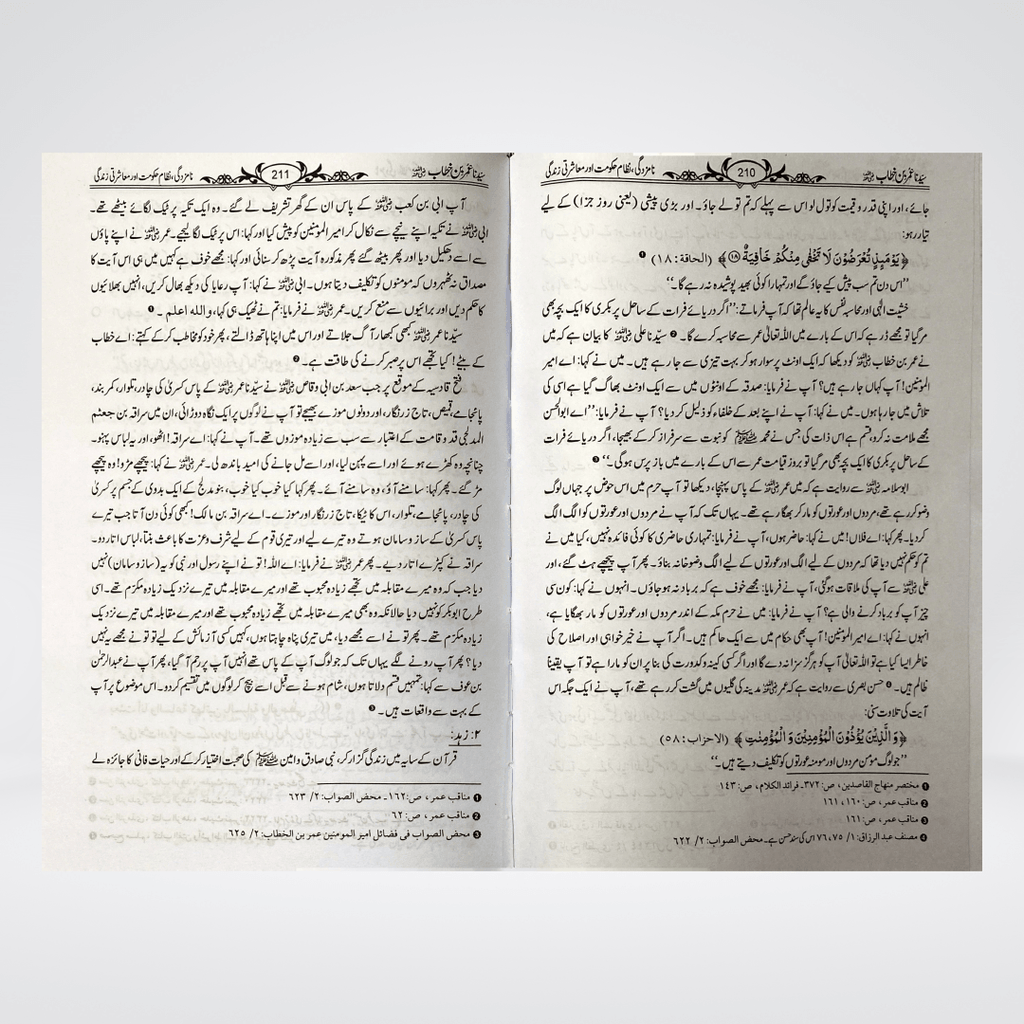 سیّدنا عمر بن خطاب رضی اللہ عنہ 210 نامزدگی، نظام حکومت اور معاشرتی زندگی
جائے، اور اپنی قدر و قیمت کو تول لو اس سے پہلے کہ تم تولے جاؤ۔ اور بڑی پیشی (یعنی روز جزا) کے لیے
تیار رہو:
﴿يَوْمَىِٕذٍ تُعْرَضُوْنَ لَا تَخْفٰى مِنْكُمْ خَافِيَةٌ ۝۱۸﴾ (الحاقة: ۱۸) ❶
’’اس دن تم سب پیش کیے جاؤ گے اور تمہارا کوئی بھید پوشیدہ نہ رہے گا۔‘‘
خشیّت الٰہی اور محاسبہ نفس کا یہ عالم تھا کہ آپ فرماتے: ’’اگر دریائے فرات کے ساحل پر بکری کا ایک بچہ بھی
مرگیا تو مجھے ڈر ہے کہ اس کے بارے میں اللہ تعالیٰ عمر سے محاسبہ کرے گا۔ ❷ سیّدنا علی رضی اللہ عنہ کا بیان ہے کہ میں
نے عمر بن خطاب رضی اللہ عنہ کو دیکھا کہ ایک اونٹ پر سوار ہو کر بہت تیزی سے جا رہے ہیں۔ میں نے کہا: اے امیر
المومنین! آپ کہاں جا رہے ہیں؟ آپ نے فرمایا: صدقہ کے اونٹوں میں سے ایک اونٹ بھاگ گیا ہے اسی کی
تلاش میں جا رہا ہوں۔ میں نے کہا: آپ نے اپنے بعد کے خلفاء کو ذلیل کر دیا؟ آپ نے فرمایا: ’’اے ابوالحسن
مجھے ملامت نہ کرو، قسم ہے اس ذات کی جس نے محمد ﷺ کو نبوت سے سرفراز کرکے بھیجا، اگر دریائے فرات
کے ساحل پر بکری کا ایک بچہ بھی مر گیا تو بروز قیامت عمر سے اس کے بارے میں باز پرس ہوگی۔‘‘ ❸
ابوسلامہ سے روایت ہے کہ میں عمر رضی اللہ عنہ کے پاس پہنچا، دیکھا تو آپ حرم میں اس حوض پر جہاں لوگ
وضو کر رہے تھے، مردوں اور عورتوں کو مار کر بھگا رہے تھے۔ یہاں تک کہ آپ نے مردوں اور عورتوں کو الگ الگ
کر دیا۔ پھر کہا: اے فلاں! میں نے کہا: حاضر ہوں، آپ نے فرمایا: تمہاری حاضری کا کوئی فائدہ نہیں، کیا میں نے
تم کو حکم نہیں دیا تھا کہ مردوں کے لیے الگ اور عورتوں کے لیے الگ وضو خانہ بناؤ۔ پھر آپ پیچھے ہٹ گئے، اور
علی رضی اللہ عنہ سے آپ کی ملاقات ہو گئی، آپ نے فرمایا: مجھے خوف ہے کہ برباد نہ ہو جاؤں۔ انہوں نے کہا: کون سی
چیز آپ کو برباد کرنے والی ہے؟ آپ نے فرمایا: میں نے حرم مکہ کے اندر مردوں اور عورتوں کو مار بھگایا ہے،
انہوں نے کہا: اے امیر المومنین! آپ بھی حکام میں سے ایک حاکم ہیں۔ اگر آپ نے خیر خواہی اور اصلاح کی
خاطر ایسا کیا ہے تو اللہ تعالیٰ آپ کو ہرگز سزا نہ دے گا اور اگر کسی کینہ و کدورت کی بنا پر ان کو مارا ہے تو آپ یقیناً
ظالم ہیں۔ ❹ حسن بصری سے روایت ہے کہ عمر رضی اللہ عنہ مدینہ کی گلیوں میں گشت کر رہے تھے، آپ نے ایک جگہ اس
آیت کی تلاوت سنی:
﴿وَ الَّذِيْنَ يُؤْذُوْنَ الْمُؤْمِنِيْنَ وَ الْمُؤْمِنٰتِ﴾ (الاحزاب: ۵۸)
’’جو لوگ مومن مردوں اور مومنہ عورتوں کو تکلیف دیتے ہیں۔‘‘
❶ مختصر منهاج القاصدين، ص: ۳۷۲۔ فرائد الكلام، ص: ۱۴۳
❷ مناقب عمر، ص: ۱۶۰، ۱۶۱
❸ مناقب عمر، ص: ۱۶۱
❹ مصنف عبد الرزاق: ۱/ ۷۵، ۷۶ اس کی سند حسن ہے۔ محض الصواب: ۲/ ۶۲۲
سیّدنا عمر بن خطاب رضی اللہ عنہ 211 نامزدگی، نظام حکومت اور معاشرتی زندگی
آپ ابی بن کعب رضی اللہ عنہ کے پاس ان کے گھر تشریف لے گئے۔ وہ ایک تکیہ پر ٹیک لگائے بیٹھے تھے۔
ابی رضی اللہ عنہ نے تکیہ اپنے نیچے سے نکال کر امیر المومنین کو پیش کیا اور کہا: اس پر ٹیک لگا لیجیے۔ عمر رضی اللہ عنہ نے اپنے پاؤں
سے اسے دھکیل دیا اور پھر بیٹھ گئے پھر مذکورہ آیت پڑھ کر سنائی اور کہا: مجھے خوف ہے کہیں میں ہی اس آیت کا
مصداق نہ ٹھہروں کہ مومنوں کو تکلیف دیتا ہوں۔ ابی رضی اللہ عنہ نے کہا: آپ رعایا کی دیکھ بھال کریں، انہیں بھلائیوں
کا حکم دیں اور برائیوں سے منع کریں۔ عمر رضی اللہ عنہ نے فرمایا: تم نے ٹھیک ہی کہا، واللہ اعلم۔ ❶
سیّدنا عمر رضی اللہ عنہ کبھی کبھار آگ جلاتے اور اس میں اپنا ہاتھ ڈالتے، پھر خود کو مخاطب کرکے کہتے: اے خطاب
کے بیٹے! کیا تجھے اس پر صبر کرنے کی طاقت ہے۔ ❷
فتح قادسیہ کے موقع پر جب سعد بن ابی وقاص رضی اللہ عنہ نے سیّدنا عمر رضی اللہ عنہ کے پاس کسریٰ کی چادر، تلوار، کمر بند،
پائجامے، قمیص، تاج زرنگار، اور دونوں موزے بھیجے تو آپ نے لوگوں پر ایک نگاہ دوڑائی، ان میں سراقہ بن جعشم
المدلجی قد و قامت کے اعتبار سے سب سے زیادہ موزوں تھے۔ آپ نے کہا: اے سراقہ! اٹھو، اور یہ لباس پہنو۔
چنانچہ وہ کھڑے ہوئے اور اسے پہن لیا، اور اسے مل جانے کی امید باندھ لی۔ عمر رضی اللہ عنہ نے کہا: پیچھے مڑو! وہ پیچھے
مڑ گئے۔ پھر کہا: سامنے آؤ، وہ سامنے آئے۔ پھر کہا کیا خوب کیا خوب، بنو مدلج کے ایک بدوی کے جسم پر کسریٰ
کی چادر، پائجامے، تلوار، اس کا پٹکا، تاج زرنگار اور موزے۔ اے سراقہ بن مالک! کبھی کوئی دن آتا جب تیرے
پاس کسریٰ کے ساز و سامان ہوتے وہ تیرے لیے اور تیری قوم کے لیے شرف و عزت کا باعث بنتا، لباس اتار دو۔
سراقہ نے کپڑے اتار دیے۔ پھر عمر رضی اللہ عنہ نے فرمایا: اے اللہ! تو نے اپنے رسول اور نبی کو یہ (ساز و سامان) نہیں
دیا جب کہ وہ میرے مقابلہ میں تجھے زیادہ محبوب تھے اور میرے مقابلہ میں تیرے نزدیک زیادہ مکرم تھے۔ اسی
طرح ابوبکر کو نہیں دیا حالانکہ وہ بھی میرے مقابلہ میں تجھے زیادہ محبوب تھے اور میرے مقابلہ میں تیرے نزدیک
زیادہ مکرم تھے۔ پھر تو نے اسے مجھے دیا، میں تیری پناہ چاہتا ہوں، کہیں کسی آزمائش کے لیے تو تو نے مجھے یہ نہیں
دیا؟ پھر آپ رونے لگے یہاں تک کہ جو لوگ آپ کے پاس تھے انہیں آپ پر رحم آ گیا، پھر آپ نے عبدالرحمٰن
بن عوف سے کہا: تمہیں قسم دلاتا ہوں، شام ہونے سے قبل اسے بیچ کر لوگوں میں تقسیم کر دو۔ اس موضوع پر آپ
کے بہت سے واقعات ہیں۔ ❸
۲: زہد:
قرآن کے سایہ میں زندگی گزار کر، نبی صادق و امین ﷺ کی صحبت اختیار کرکے اور حیات فانی کا جائزہ لے
❶ مناقب عمر، ص: ۱۶۲۔ محض الصواب: ۲/ ۶۲۳
❷ مناقب عمر، ص: ۶۲
❸ محض الصواب فی فضائل امیر المومنین عمر بن الخطاب: ۲/ ۶۲۵